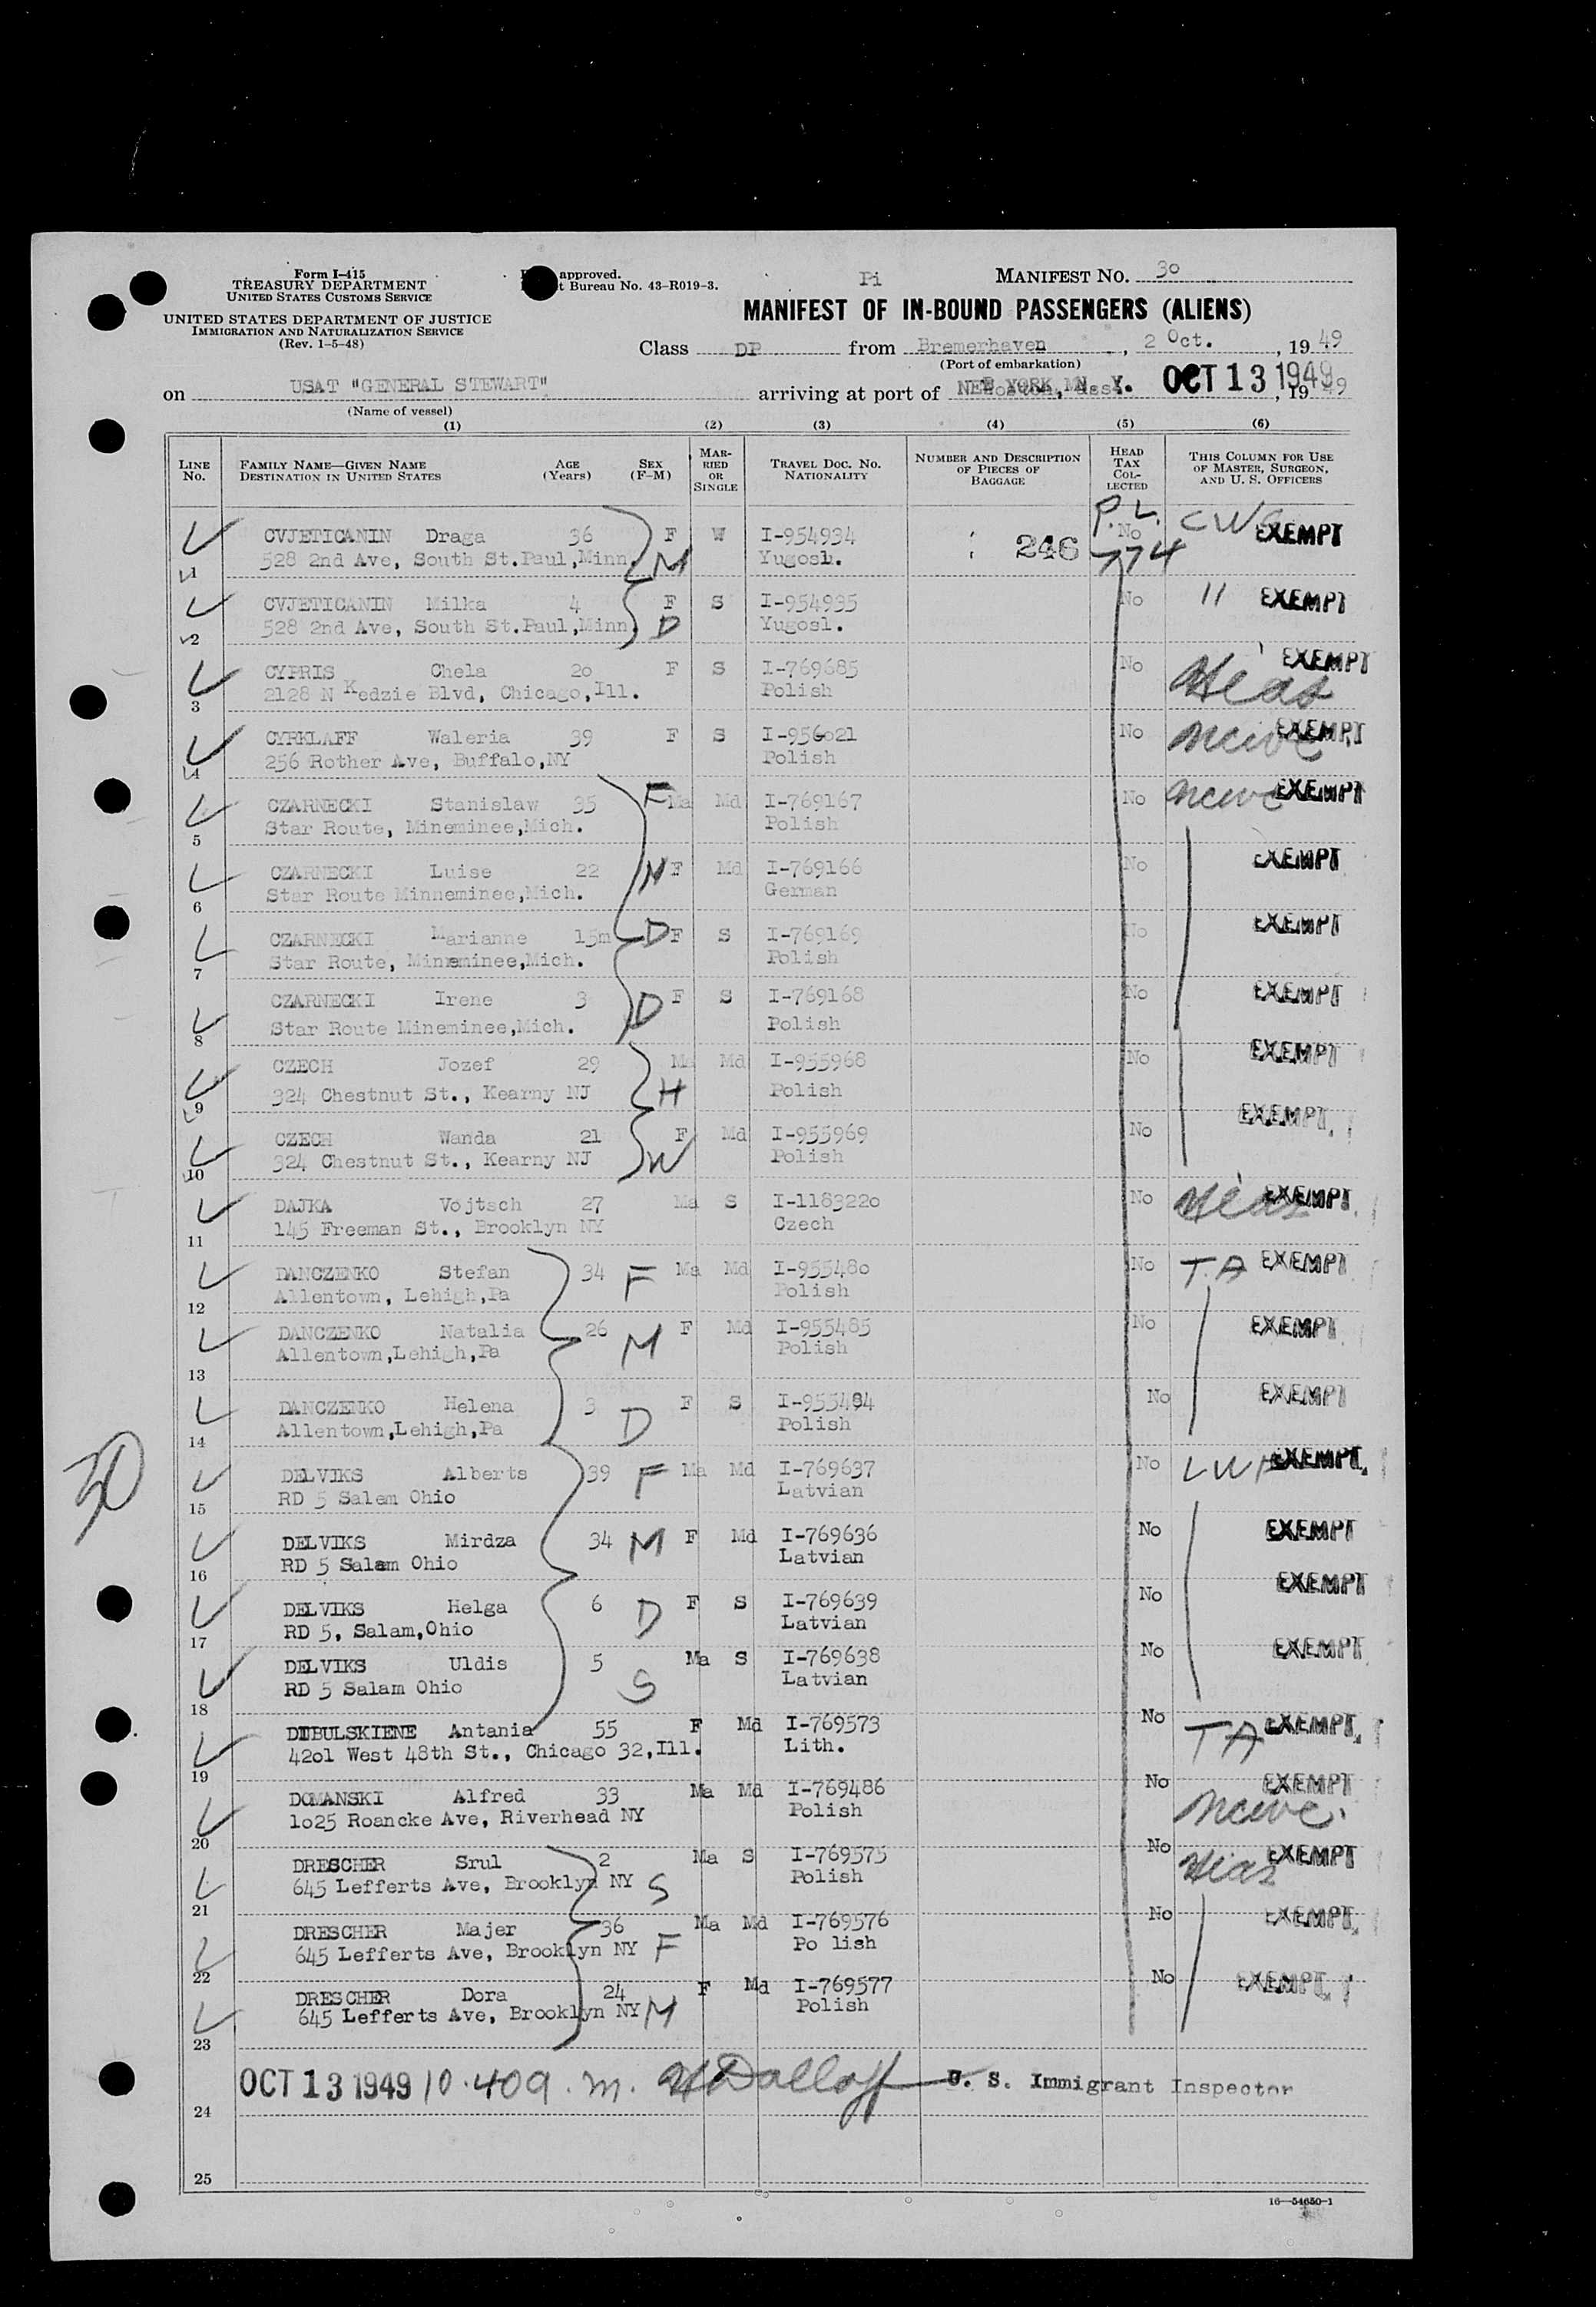 Form I-415
TREASURY DEPARTMENT
UNITED STATES CUSTOMS SERVICE
UNITED STATES DEPARTMENT OF JUSTICE
IMMIGRATION AND NATURALIZATION SERVICE
(Rev. 1-5-48)
approved.
t Bureau No. 43-R019-3.
Pi
MANIFEST NO. 30
MANIFEST OF IN-BOUND PASSENGERS (ALIENS)
Class DP from Bremerhaven, 2 Oct., 1949
(Port of embarkation)
on USAT "GENERAL STEWART" arriving at port of NEW YORK, N. Y. OCT 13 1949, 1949
(Name of vessel)
(1) (2) (3) (4) (5) (6)
LINE No. FAMILY NAME—GIVEN NAME DESTINATION IN UNITED STATES AGE (Years) SEX (F-M) MARRIED OR SINGLE TRAVEL DOC. NO. NATIONALITY NUMBER AND DESCRIPTION OF PIECES OF BAGGAGE HEAD TAX COLLECTED THIS COLUMN FOR USE OF MASTER, SURGEON, AND U. S. OFFICERS
P. L. 774
1 CVJETICANIN Draga 36 F W I-954934 246 No CWS EXEMPT
528 2nd Ave, South St.Paul,Minn. M Yugosl.
2 CVJETICANIN Milka 4 F S I-954935 No " EXEMPT
528 2nd Ave, South St.Paul,Minn. D Yugosl.
3 CYPRIS Chela 20 F S I-769685 No Hias EXEMPT
2128 N Kedzie Blvd, Chicago,Ill. Polish
4 CYRKLAFF Waleria 39 F S I-956021 No ncwc EXEMPT
256 Rother Ave, Buffalo,NY Polish
5 CZARNECKI Stanislaw 35 F Ma Md I-769167 No ncwc EXEMPT
Star Route, Mineminee,Mich. Polish
6 CZARNECKI Luise 22 M F Md I-769166 No EXEMPT
Star Route Minneminee,Mich. German
7 CZARNECKI Marianne 15m D F S I-769169 No EXEMPT
Star Route, Minneminee,Mich. Polish
8 CZARNECKI Irene 3 D F S I-769168 No EXEMPT
Star Route Mineminee,Mich. Polish
9 CZECH Jozef 29 Ma Md I-955968 No EXEMPT
324 Chestnut St., Kearny NJ H Polish
10 CZECH Wanda 21 F Md I-955969 No EXEMPT
324 Chestnut St., Kearny NJ W Polish
11 DAJKA Vojtsch 27 Ma S I-1183220 No Hias EXEMPT
145 Freeman St., Brooklyn NY Czech
12 DANCZENKO Stefan 34 F Ma Md I-955480 No T.A EXEMPT
Allentown, Lehigh,Pa Polish
13 DANCZENKO Natalia 26 M F Md I-955485 No EXEMPT
Allentown,Lehigh,Pa Polish
14 DANCZENKO Helena 3 D F S I-955484 No EXEMPT
Allentown,Lehigh,Pa Polish
15 DELVIKS Alberts 39 F Ma Md I-769637 No LWF EXEMPT
RD 5 Salem Ohio Latvian
16 DELVIKS Mirdza 34 M F Md I-769636 No EXEMPT
RD 5 Salam Ohio Latvian
17 DELVIKS Helga 6 D F S I-769639 No EXEMPT
RD 5, Salam,Ohio Latvian
18 DELVIKS Uldis 5 S Ma S I-769638 No EXEMPT
RD 5 Salam Ohio Latvian
19 DIBULSKIENE Antania 55 F Md I-769573 No TA EXEMPT
4201 West 48th St., Chicago 32,Ill. Lith.
20 DOMANSKI Alfred 33 Ma Md I-769486 No ncwc. EXEMPT
1o25 Roancke Ave, Riverhead NY Polish
21 DRESCHER Srul 2 Ma S I-769575 No Hias EXEMPT
645 Lefferts Ave, Brooklyn NY S Polish
22 DRESCHER Majer 36 Ma Md I-769576 No EXEMPT
645 Lefferts Ave, Brooklyn NY F Po lish
23 DRESCHER Dora 24 F Md I-769577 No EXEMPT
645 Lefferts Ave, Brooklyn NY M Polish
30
24 OCT 13 1949 10.40 a.m. U. S. Immigrant Inspector
25
16—54650-1